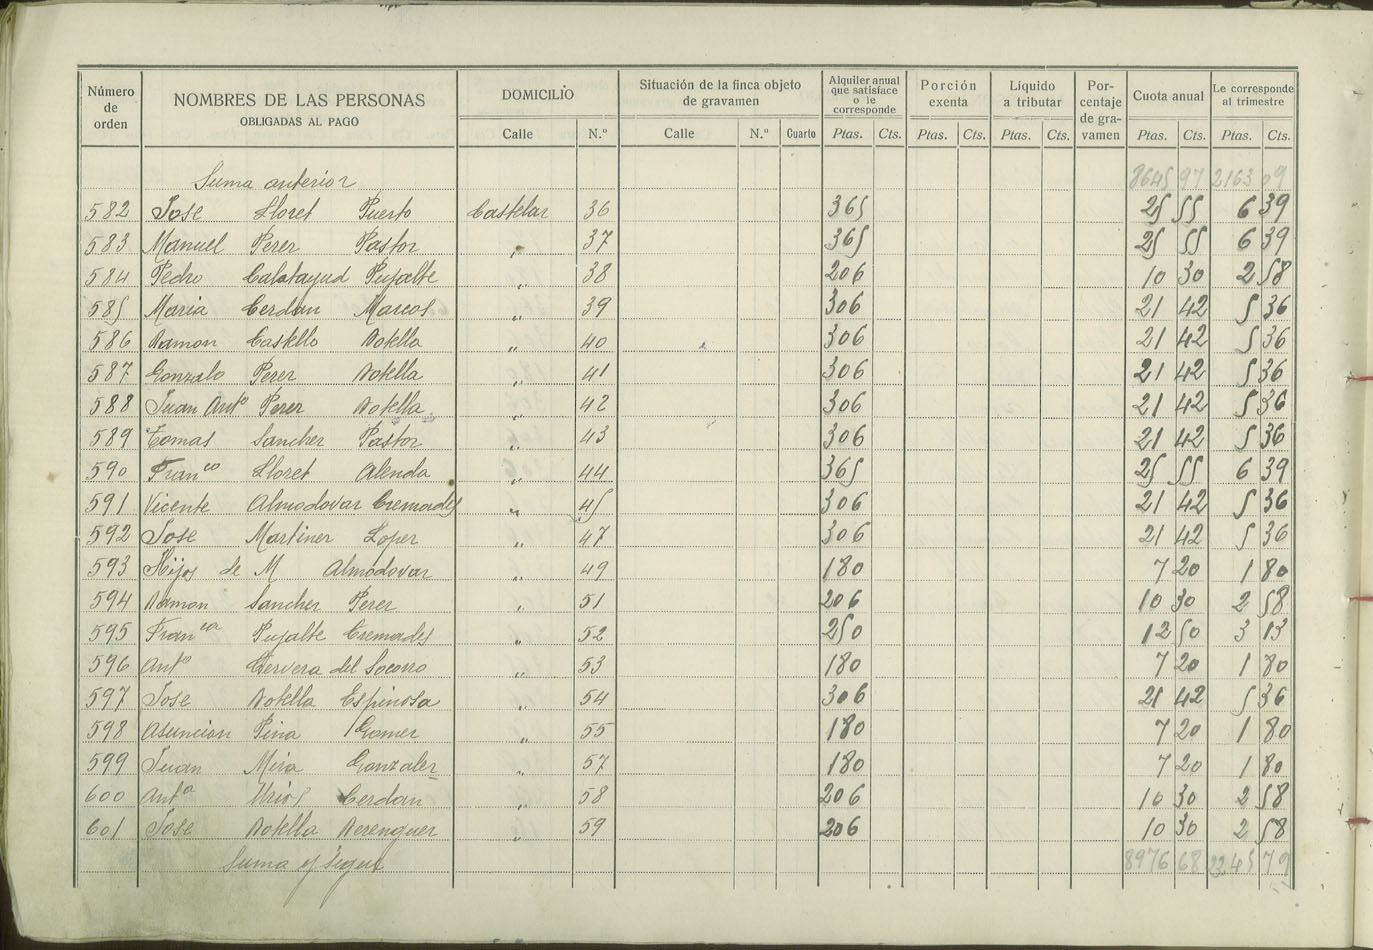 Número de orden NOMBRES DE LAS PERSONAS OBLIGADAS AL PAGO DOMICILIO Situación de la finca objeto de gravamen Alquiler anual que satisface o le corresponde Porción exenta Líquido a tributar Por-centaje de gra-vamen Cuota anual Le corresponde al trimestre
Calle N.º Calle N.º Cuarto Ptas. Cts. Ptas. Cts. Ptas. Cts. Ptas. Cts. Ptas. Cts.
Suma anterior 8645 97 2163 09
582 Jose Lloret Puerto Castelar 36 365 25 55 6 39
583 Manuel Perez Pastor " 37 365 25 55 6 39
584 Pedro Calatayud Pujalte " 38 206 10 30 2 58
585 Maria Cerdan Marcos " 39 306 21 42 5 36
586 Ramon Castello Botella " 40 306 21 42 5 36
587 Gonzalo Perez Botella " 41 306 21 42 5 36
588 Juan Antº Perez Botella " 42 306 21 42 5 36
589 Tomas Sanchez Pastor " 43 306 21 42 5 36
590 Franco Lloret Alenda " 44 365 25 55 6 39
591 Vicente Almodovar Cremades " 45 306 21 42 5 36
592 Jose Martinez Lopez " 47 306 21 42 5 36
593 Hijos de M Almodovar " 49 180 7 20 1 80
594 Ramon Sanchez Perez " 51 206 10 30 2 58
595 Franca Pujalte Cremades " 52 250 12 50 3 13
596 Antº Cervera del Socorro " 53 180 7 20 1 80
597 Jose Botella Espinosa " 54 306 21 42 5 36
598 Asuncion Pina Gomez " 55 180 7 20 1 80
599 Juan Mira Gonzalez " 57 180 7 20 1 80
600 Antª Urios Cerdan " 58 206 10 30 2 58
601 Jose Botella Berenguer " 59 206 10 30 2 58
Suma y sigue 8976 68 2245 79